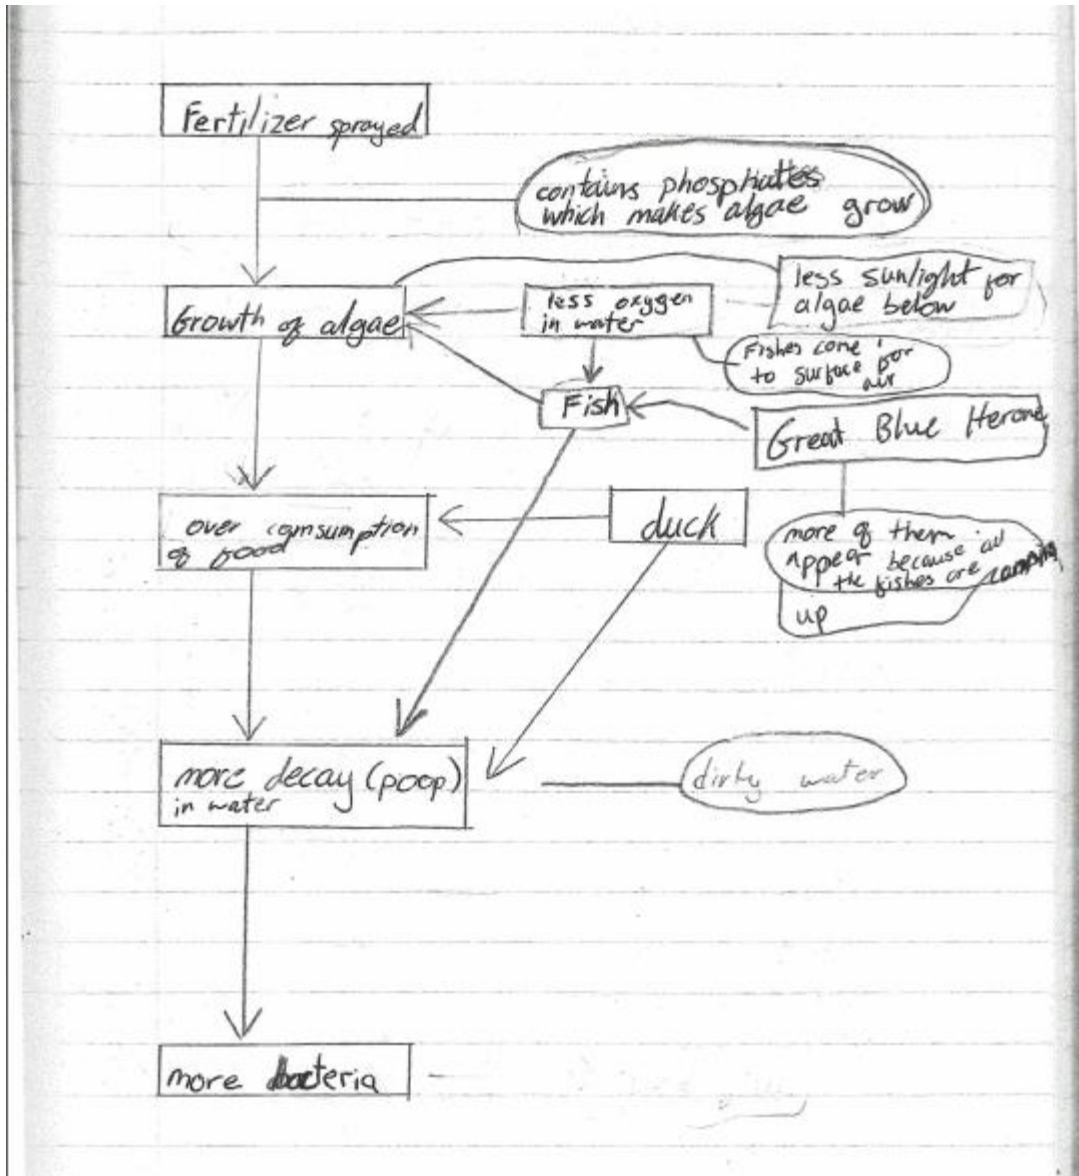 Fertilizer sprayed
contains phosphates
which makes algae grow
less sunlight for
algae below
Growth of algae
less oxygen
in water
Fishes come
to surface for
air
Fish
Great Blue Herone
over comsumption
of food
duck
more of them
appear because all
the fishes are comping
up
more decay (poop)
in water
dirty water
more bacteria